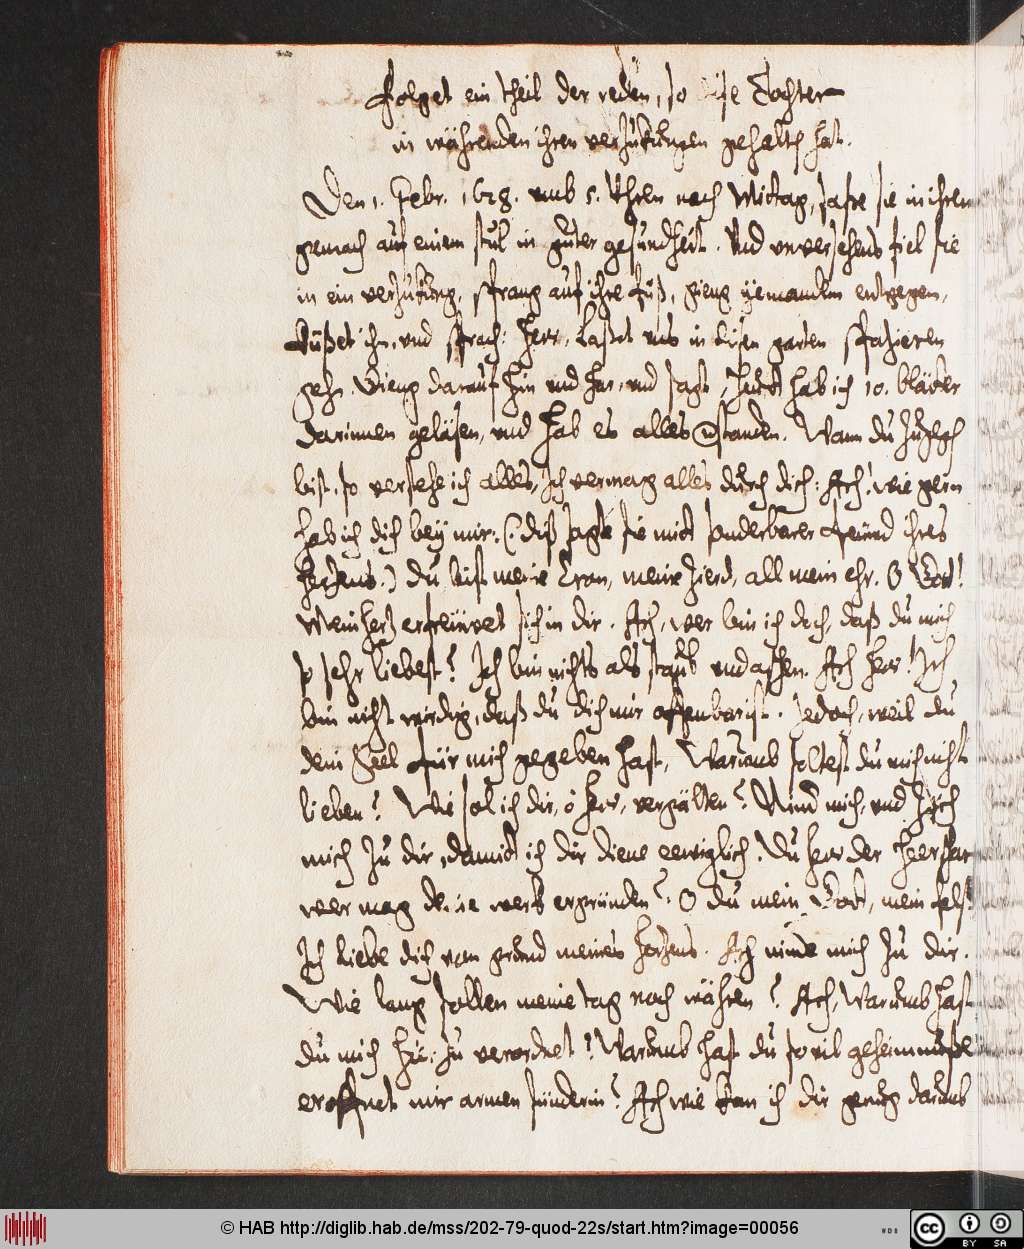 Folget ein theil der reden, so dise Tochter
in währenden ihren verzukungen gehalten hat.
Den 1. Febr. 1628. umb 5. Uhren nach Mittag, saße sie in ihrem
gemach auf einem stul in guter gesundheit. Und unversehens fiel sie
in ein verzukung, sprang auf ihre füß, gieng yemandem entgegen,
küßet ihn, und sprach: Herr, Laßet uns in disen garten spazieren
gehn. Gieng darauf hin und her, und sagt, hab ich 10. blätter
darinnen geläsen, und hab es alles verstanden. Wann du zugegen
bist, so verstehe ich alles, Ich vermag alles durch dich: Ach, wie gern
hab ich dich bey mir. (: diß sagte sie mit sonderbarer freüwd ihres
Herzens.) Du bist meine Cron, meine zierd, all mein ehr. O Gott!
Mein herz erfreüwet sich in dir. Ach, wer bin ich doch, daß du mich
so sehr liebest? Ich bin nichts als staub und aschen. Ach Herr! Ich
bin nicht wirdig, daß du dich mir offenbarist. Jedoch, weil du
dein Seel für mich gegeben hast, Warumb soltest du mich nicht
lieben? Wie sol ich dir, ô Herr, vergälten? Nimb mich, und züch
mich zu dir, damit ich dir diene eewiglich. Du Herr der Heerschar
wer mag deine werk ergründen? O du mein Gott, mein fels!
Ich liebe dich von grund meines Herzens. Ach nimb mich zu dir.
Wie lang sollen meine tag noch währen? Ach, Warumb hast
du mich hie zu verordnet? Warumb hast du so vil geheimnuße
eroffnet mir armen sünderin? Ach wie kan ich dir genug darumb
© HAB http://diglib.hab.de/mss/202-79-quod-22s/start.htm?image=00056
WDB
cc BY SA